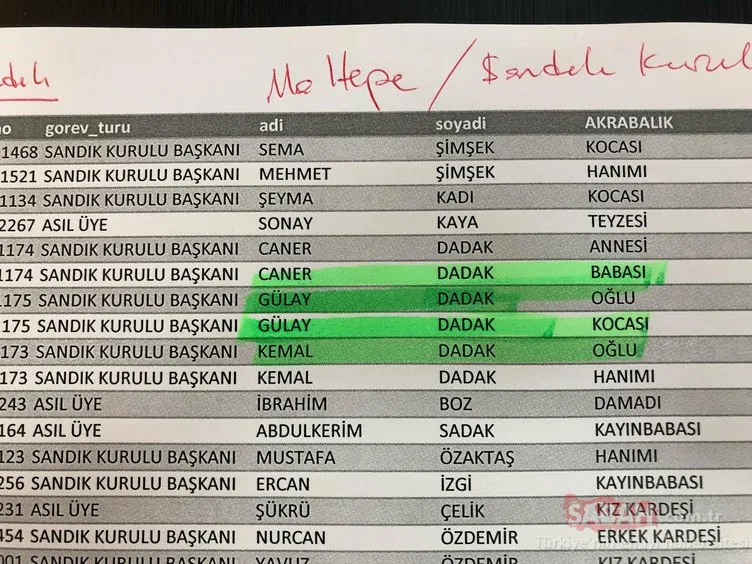 Maltepe / Sandık Kurul
no gorev_turu adi soyadi AKRABALIK
1468 SANDIK KURULU BAŞKANI SEMA ŞİMŞEK KOCASI
1521 SANDIK KURULU BAŞKANI MEHMET ŞİMŞEK HANIMI
1134 SANDIK KURULU BAŞKANI ŞEYMA KADI KOCASI
2267 ASIL ÜYE SONAY KAYA TEYZESİ
1174 SANDIK KURULU BAŞKANI CANER DADAK ANNESİ
1174 SANDIK KURULU BAŞKANI CANER DADAK BABASI
1175 SANDIK KURULU BAŞKANI GÜLAY DADAK OĞLU
1175 SANDIK KURULU BAŞKANI GÜLAY DADAK KOCASI
173 SANDIK KURULU BAŞKANI KEMAL DADAK OĞLU
173 SANDIK KURULU BAŞKANI KEMAL DADAK HANIMI
243 ASIL ÜYE İBRAHİM BOZ DAMADI
164 ASIL ÜYE ABDULKERİM SADAK KAYINBABASI
123 SANDIK KURULU BAŞKANI MUSTAFA ÖZAKTAŞ HANIMI
256 SANDIK KURULU BAŞKANI ERCAN İZGİ KAYINBABASI
231 ASIL ÜYE ŞÜKRÜ ÇELİK KIZ KARDEŞİ
454 SANDIK KURULU BAŞKANI NURCAN ÖZDEMİR ERKEK KARDEŞİ
001 SANDIK KURULU BAŞKANI YAVUZ ÖZDEMİR KIZ KARDEŞİ
SABAH.com.tr